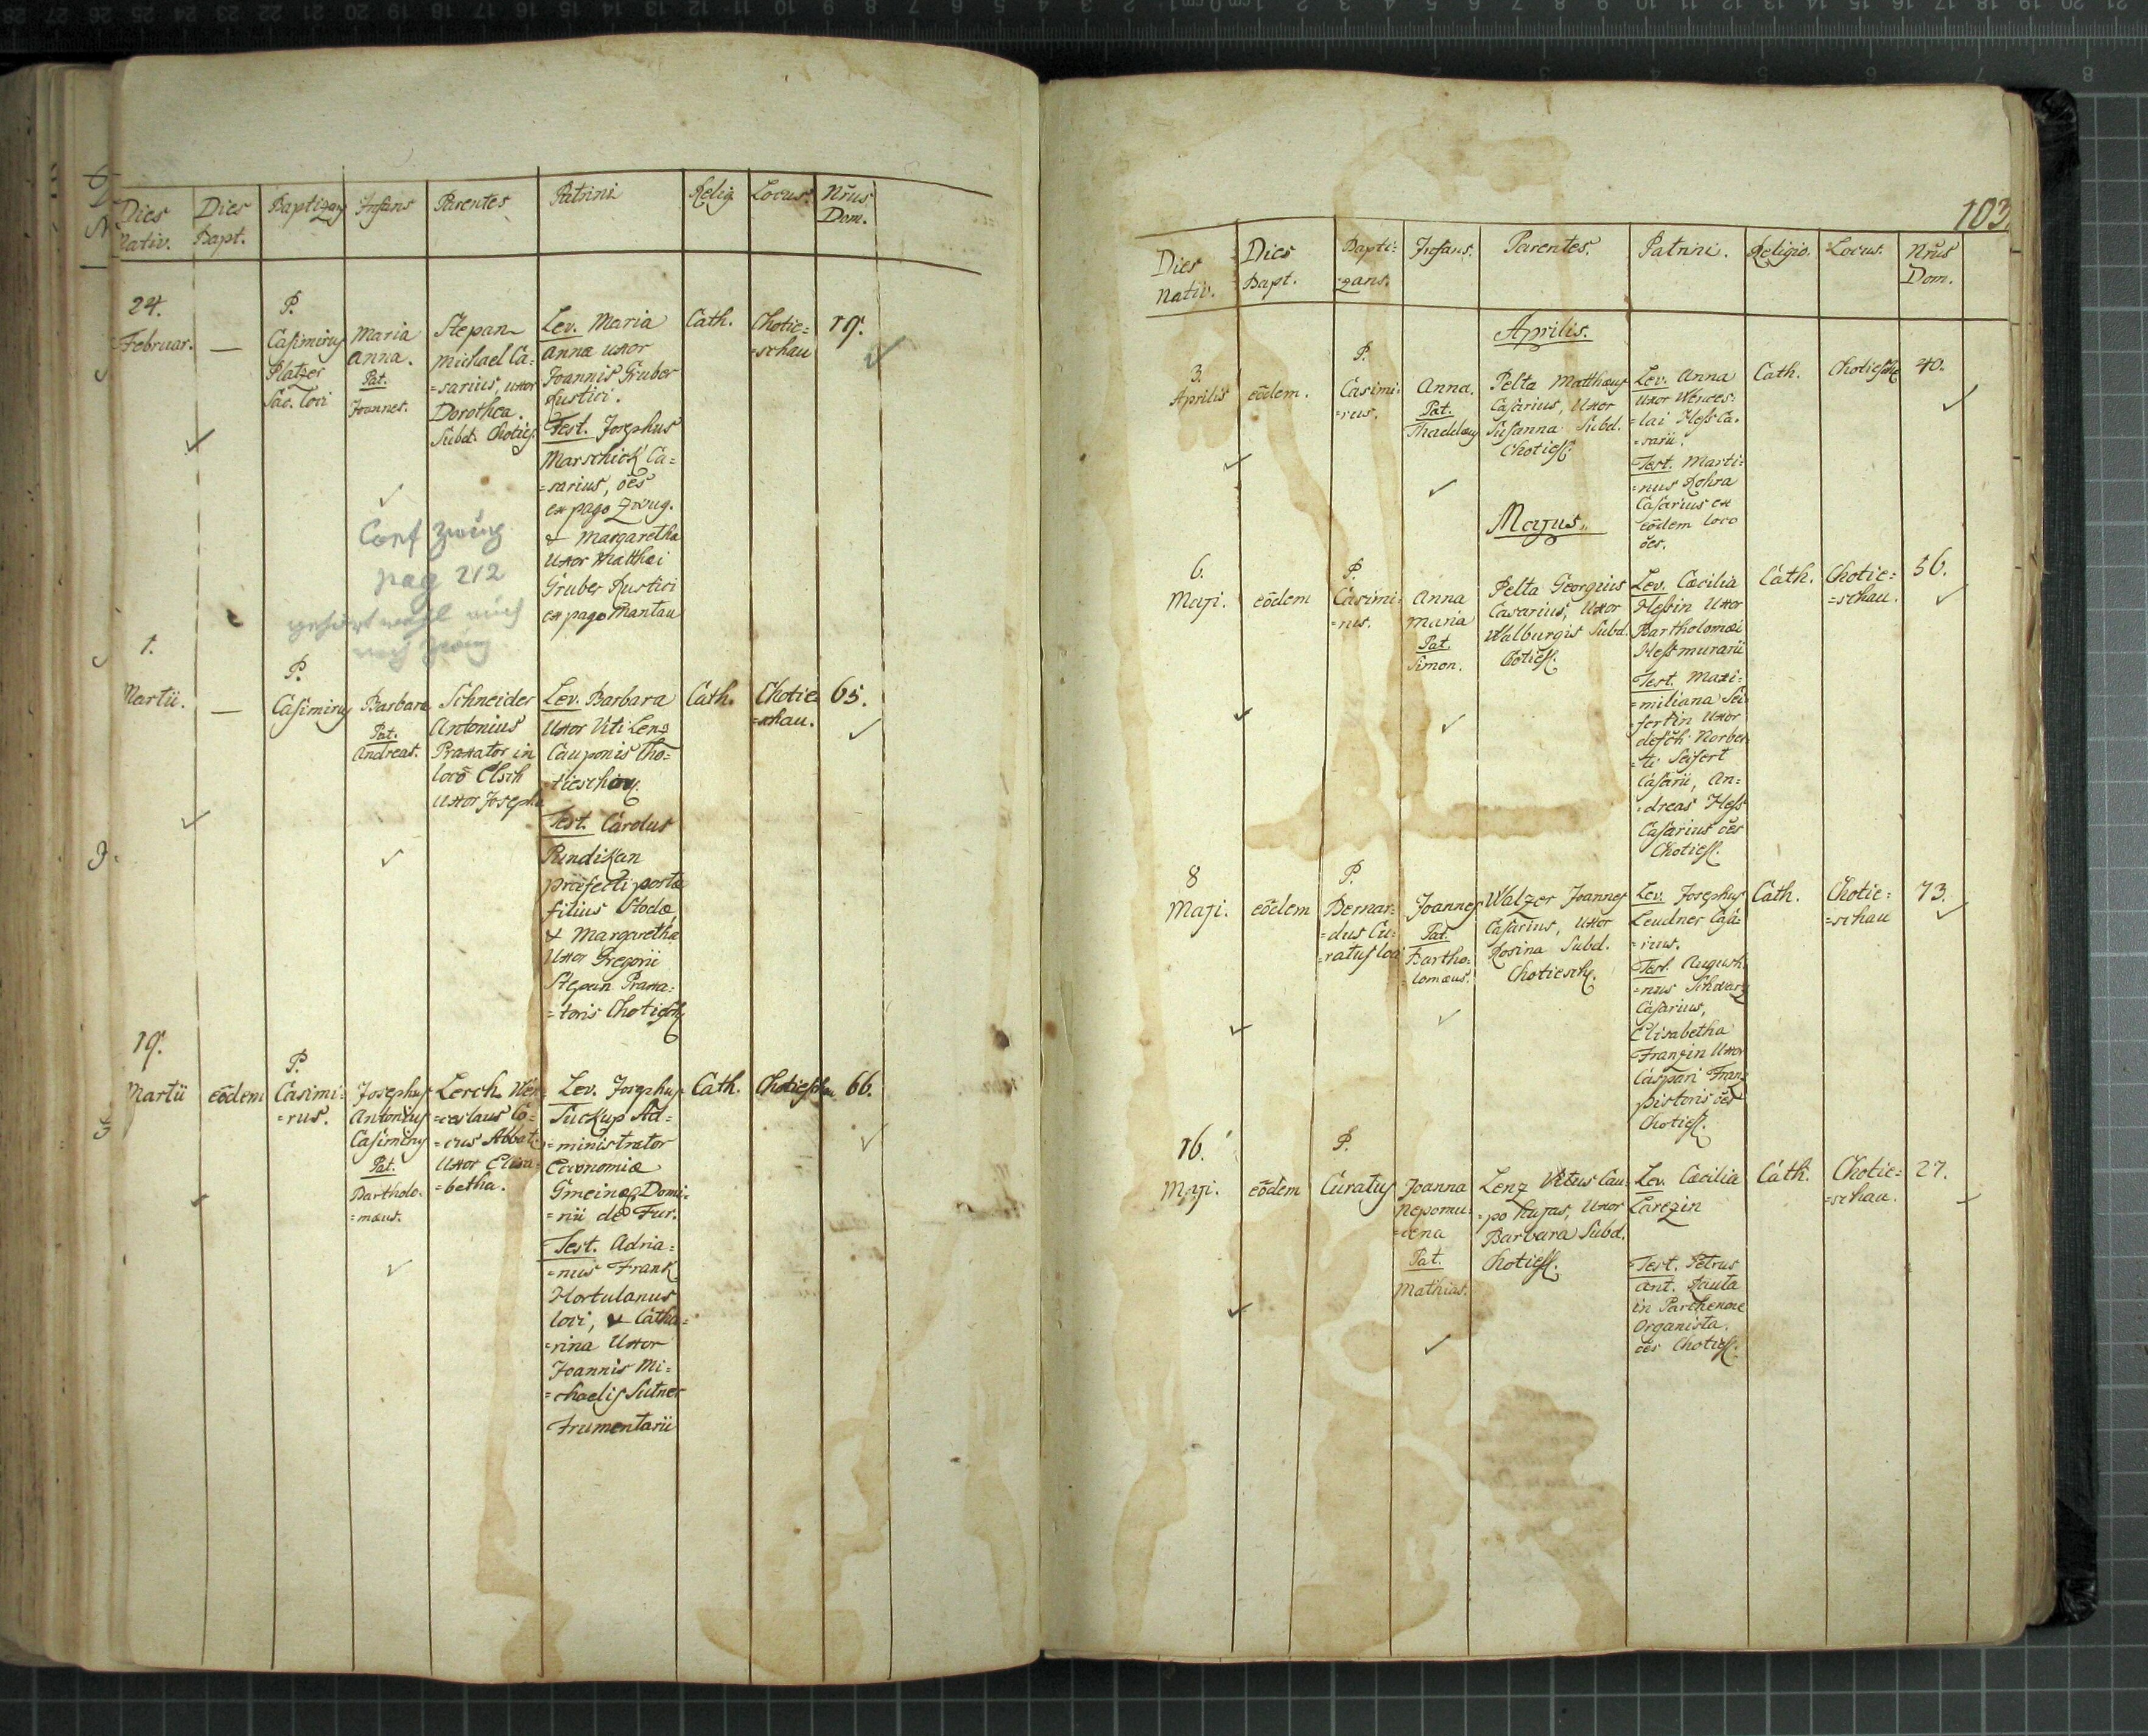 Dies Nativ.
Dies Bapt.
Baptizans
Infans
Parentes
Patrini
Relig.
Locus.
Nrus Dom.
24.
Februar.
—
P.
Casimirus
Platzer
Sac. loci
Maria
Anna.
Pat.
Joannes.
Stepan
Michael Ca=
=sarius, uxor
Dorothea.
Subd. Chotiess.
Lev. Maria
Anna uxor
Joannis Gruber
Rustici.
Test. Josephus
Marschick Ca=
=sarius, oēs
ex pago Zwug.
& Margaretha
Uxor Matthæi
Gruber Rustici
ex pago Mantau
Cath.
Chotie=
=schau
19.
Conf Zwug
pag 212
1.
Martii.
—
P.
Casimirus
Barbara
Pat.
Andreas.
Schneider
Antonius
Braxator in
locō Elsch
uxor Josepha
Lev. Barbara
Uxor Viti Lenz
Cauponis Cho=
tieschov.
Test. Carolus
Rundikan
præfecti portæ
filius Stodæ
& Margaretha
Uxor Gregorii
Stepan Braxa=
=toris Chotiesch.
Cath.
Chotie=
=schau.
65.
19.
Martii
eōdem
P.
Casimi=
=rus.
Josephus
Antonius
Casimirus
Pat.
Bartholo=
=mæus.
Lerch Wen=
=ceslaus Co=
=cus Abbat:
Uxor Elisa=
=betha.
Lev. Josephus
Suckup Ad=
=ministrator
Œconomiæ
Gmeinæ Domi=
=nii de Fur.
Test. Adria=
=nus Frank
Hortulanus
loci, & Catha=
=rina Uxor
Joannis Mi=
=chaelis Sutner
Frumentarii
Cath.
Chotieschau
66.
103.
Dies Nativ.
Dies Bapt.
Bapti=
=zans.
Infans.
Parentes.
Patrini.
Religio.
Locus.
Nrus Dom.
Aprilis.
3.
Aprilis
eōdem.
P.
Casimi=
=rus.
Anna.
Pat.
Thaddæus
Pelta Matthæus
Casarius, Uxor
Susanna Subd.
Chotiess.
Lev. Anna
Uxor Wences=
=lai Hess Ca=
=sarii.
Test. Marti=
=nus Kohra
Casarius ex
eōdem loco
ōes.
Cath.
Chotiesch.
40.
Majus.
6.
Maji.
eōdem
P.
Casimi=
=rus.
Anna
Maria
Pat.
Simon.
Pelta Georgius
Casarius, Uxor
Walburgis Subd.
Chotiess.
Lev. Cæcilia
Hessin Uxor
Bartholomæi
Hess murarii
Test. Maxi=
=miliana Sei=
fertin Uxor
Norber=
=ti Seifert
Casarii, An=
=dreas Hess
Casarius ōes
Chotiess.
Cath.
Chotie=
=schau.
56.
8
Maji.
eōdem
P.
Bernar=
=dus Cu=
=ratus loci
Joannes
Pat.
Bartho=
=lomæus.
Walzer Joannes
Casarius, Uxor
Rosina Subd.
Chotiesch.
Lev. Josephus
Leudner Casa=
=rius.
Test. Augusti=
=nus Schwarz
Casarius,
Elisabetha
Franzin Uxor
Caspari Franz
pistoris ōes
Chotiess.
Cath.
Chotie=
=schau
73.
16.
Maji.
eōdem
P.
Curatus
Joanna
Nepomu=
=cena
Pat.
Mathias.
Lenz Vitus Cau=
=po hujas, Uxor
Barbara Subd.
Chotiess.
Lev. Cæcilia
Larezin
Test. Petrus
Ant. Kauta
in Parthenone
Organista.
ōes Chotiess.
Cath.
Chotie=
=schau.
27.